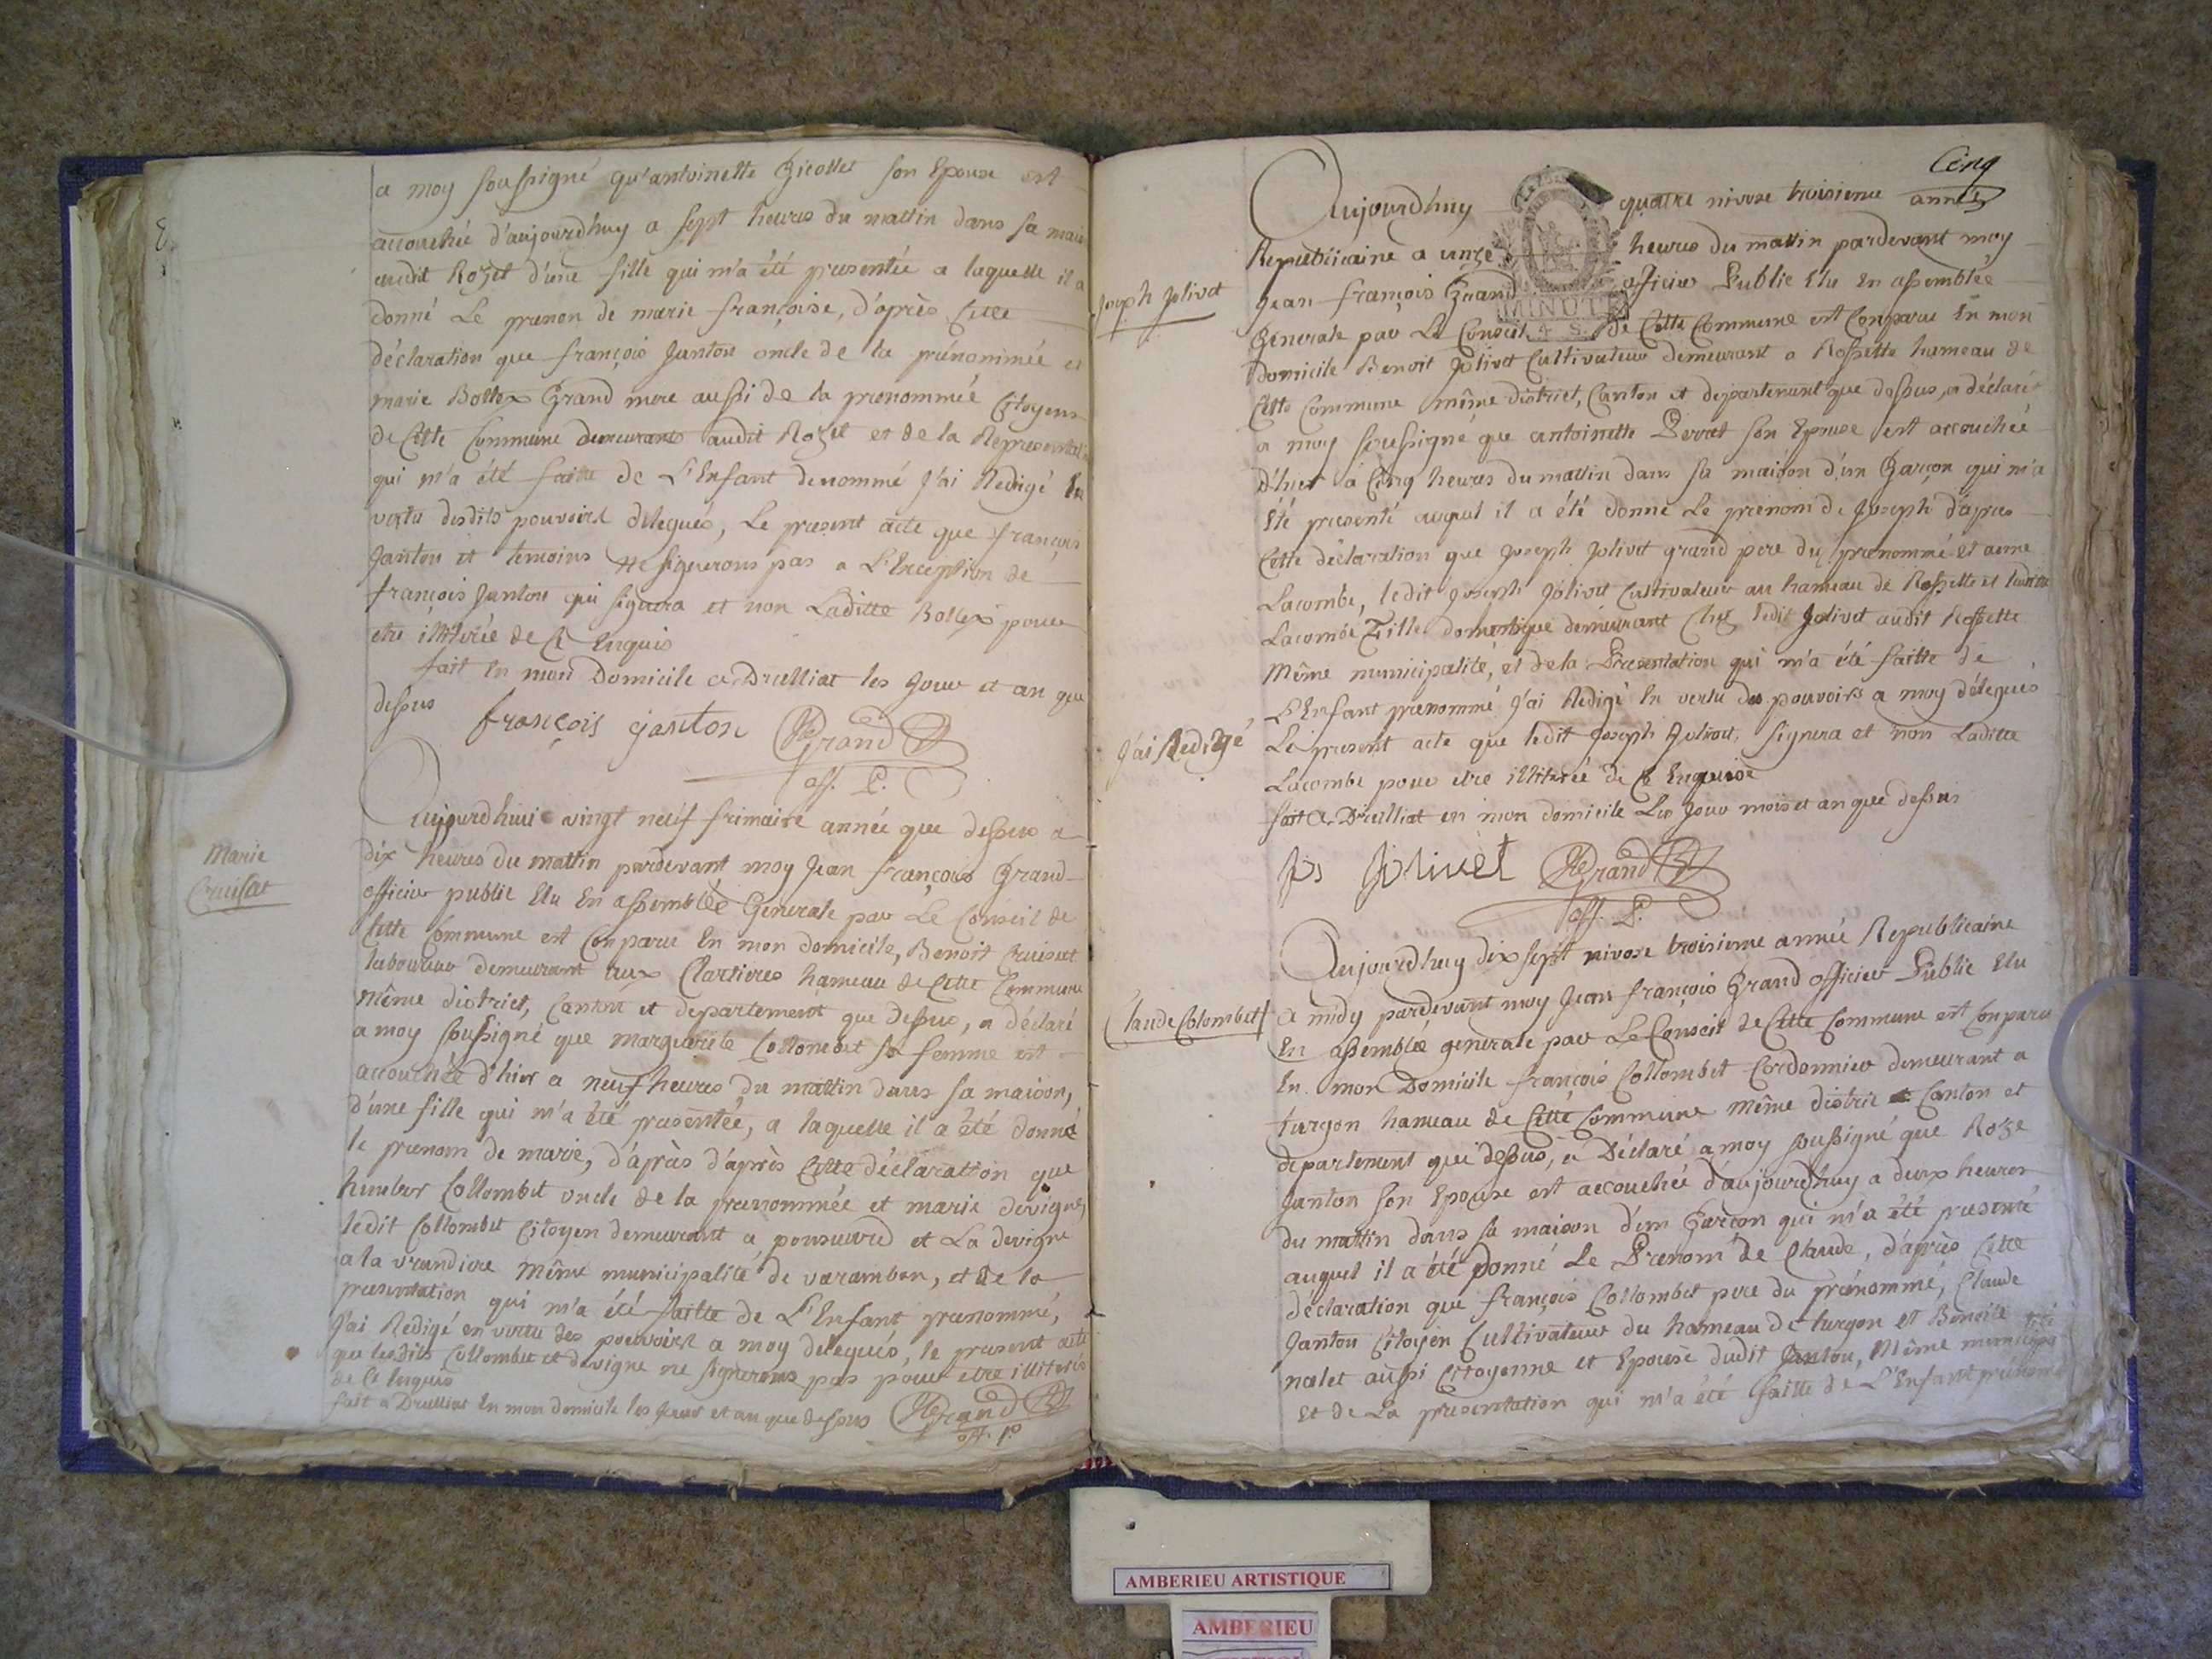 a moy soussigné qu'antoinette son Epouse est
accouchée d'aujourd'huy a sept heures du mattin dans sa mai
audit Rozet d'une fille qui m'a été presentée a laquelle il a
donné Le prenon de marie françoise, d'après Cette
déclaration que françois Janton oncle de la prénommée et
marie Bollex Grand mere aussi de la prenommée Citoyens
de Cette Commune demeurants audit Rozet et de la Representat
qui m'a été faitte de L'Enfant denommé J'ai Redigé En
vertu desdits pouvoirs delegués, Le present acte que françois
Janton et temoins ne signerons pas a L'Exception de
françois Janton qui signera et non Laditte Bollex pour
etre illiterée de Ce Enquis
fait En mon Domicile a Druilliat les Jour et an que
dessus françois janton JFGrand
off. P.
Marie
Cruisat
Aujourd'hui vingt neuf frimaire année que dessus a
dix heures du mattin pardevant moy Jean François Grand
officier public Elu En assemblée Generale par Le Conseil de
Cette Commune est Conparu En mon domicile, Benoit Cruisat
laboureur demeurant aux Clartieres hameau de Cette Commune
même district, Canton et departement que dessus, a déclaré
a moy soussigné que marguerite Collombet sa femme est
accouchée d'hier a neuf heures du mattin dans sa maison,
d'une fille qui m'a été presentée, a laquelle il a été donné
le prenom de marie, d'après d'après Cette déclaration que
humber Collombet oncle de la prenommée et marie devigne,
ledit Collombet Citoyen demeurant a et La devigne
a la même municipalité de varambon, et de la
presentation qui m'a été faitte de L'Enfant prenommé,
J'ai Redigé en vertu des pouvoirs a moy delegués, le present acte
que lesdits Collombet et devigne ne signerons pas pour etre illiterés
de Ce Enquis
fait a Druilliat En mon domicile les Jour et an que dessus JFGrand
off. P.
Cinq
Joseph Jolivet
Aujourdhuy quatre nivose troisieme année
Republicaine a unze heures du mattin pardevant moy
Jean françois Grand officier Public Elu En assemblée
MINUTE
4 S.
Generale par Le Conseil de Cette Commune est Conparu En mon
domicile Benoit Jolivet Cultivateur demeurant a Rossette hameau de
Cette Commune même district, Canton et departement que dessus, a déclaré
a moy soussigné que antoinette Perret son Epouse est accouchée
d'hier à Cinq heures du mattin dans sa maison d'un Garçon qui m'a
été presenté auquel il a été donné Le prenom de Joseph d'apres
Cette déclaration que Joseph Jolivet grand pere du prenommé et anne
Lacombe, ledit Joseph Jolivet Cultivateur au hameau de Rossette et laditte
Lacombe fille domestique demeurant Chez ledit Jolivet audit Rossette
Même municipalité, et de la Presentation qui m'a été faitte de
L'Enfant prenommé J'ai Redigé En vertu des pouvoirs a moy délegués
J'ai Redigé
Le present acte que ledit Joseph Jolivet, signera et non Laditte
Lacombe pour etre illiterée de Ce Enquise
fait a Druilliat en mon domicile Les Jour mois et an que dessus
jos jolivet JFGrand
off. P.
Claude Colombet
Aujourdhuy dix sept nivose troisieme année Republicaine
a midy pardevant moy Jean françois Grand officier Public Elu
En assemblée generale par Le Conseil de Cette Commune est Conparu
En mon Domicile françois Collombet Cordonnier demeurant a
turgon hameau de Cette Commune même distric Canton et
departement que dessus, a Déclaré a moy soussigné que Roze
Janton son Epouse est accouchée d'aujourdhuy a deux heures
du mattin dans sa maison d'un Garçon qui m'a été presenté
auquel il a été donné Le Prenom de Claude, d'après Cette
déclaration que françois Collombet pere du prénommé, Claude
Janton Citoyen Cultivateur du hameau de turgon et Benoite
nalet aussi Citoyenne et Epouse dudit Janton, Même municipa
Et de La presentation qui m'a été faitte de L'Enfant prénom
AMBERIEU ARTISTIQUE
AMBERIEU